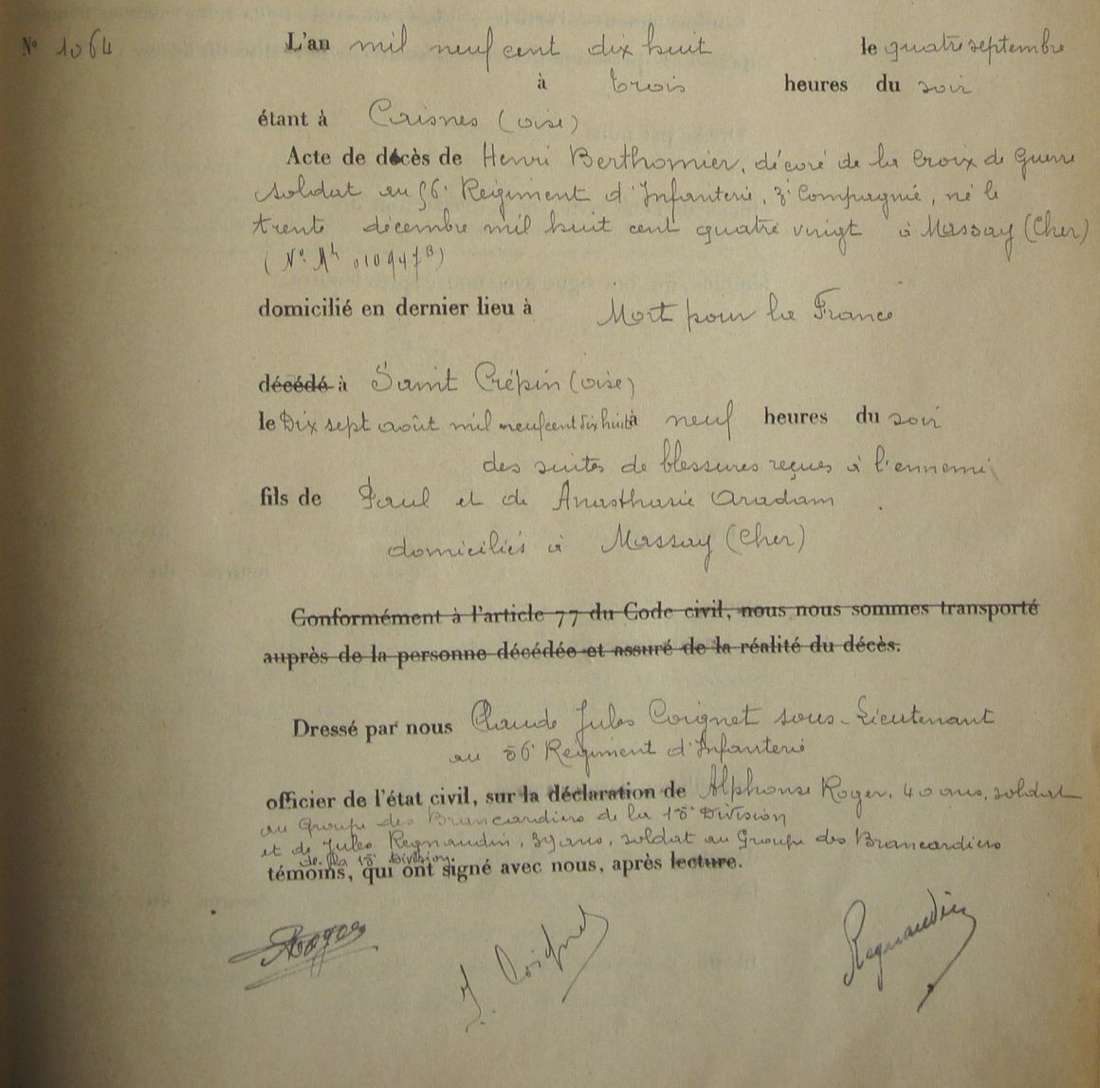 N° 1064 L'an mil neuf cent dix huit le quatre septembre
à trois heures du soir
étant à Crisnes (oise)
Acte de décès de Henri Berthomier, décoré de la Croix de Guerre
soldat au 56e Régiment d'Infanterie, 3e Compagnie, né le
trente décembre mil huit cent quatre vingt à Massay (Cher)
domicilié en dernier lieu à Mort pour la France
décédé à Saint Crépin (oise)
le Dix sept août mil neuf cent dix huit à neuf heures du soir
des suites de blessures reçues à l'ennemi
fils de Paul et de Anasthasie Aradam
domiciliés à Massay (Cher)
Conformément à l'article 77 du Code civil, nous nous sommes transporté
auprès de la personne décédée et assuré de la réalité du décès.
Dressé par nous Claude Jules Coignet sous-Lieutenant
au 56e Régiment d'Infanterie
officier de l'état civil, sur la déclaration de Alphonse Roger, 40 ans, soldat
au Groupe des Brancardiers de la 15e Division
et de Jules Regnaudin, 39 ans, soldat au Groupe des Brancardiers
de la 15e Division.
témoins, qui ont signé avec nous, après lecture.
Roger J. Coignet Regnaudin